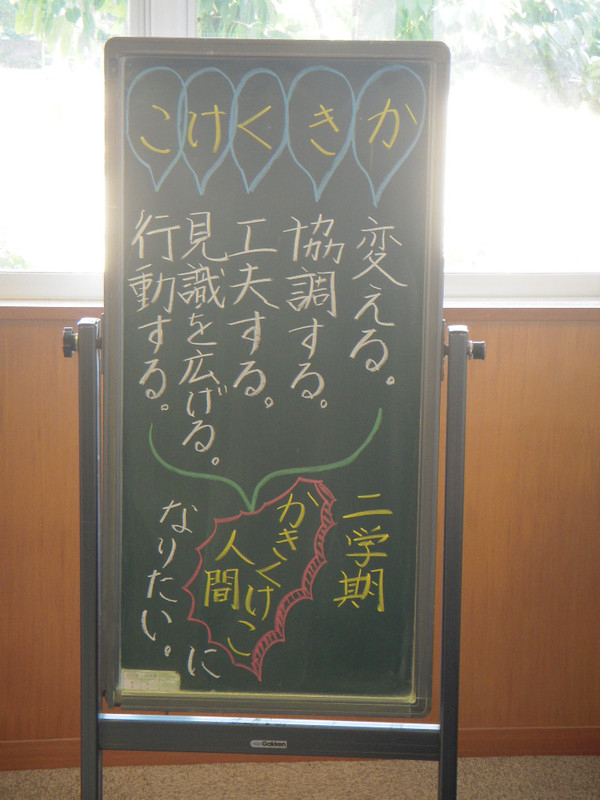 かきくけこ
変える。
協調する。
工夫する。
見識を広げる。
行動する。
二学期
かきくけこ
人間に
なりたい。
Gakken